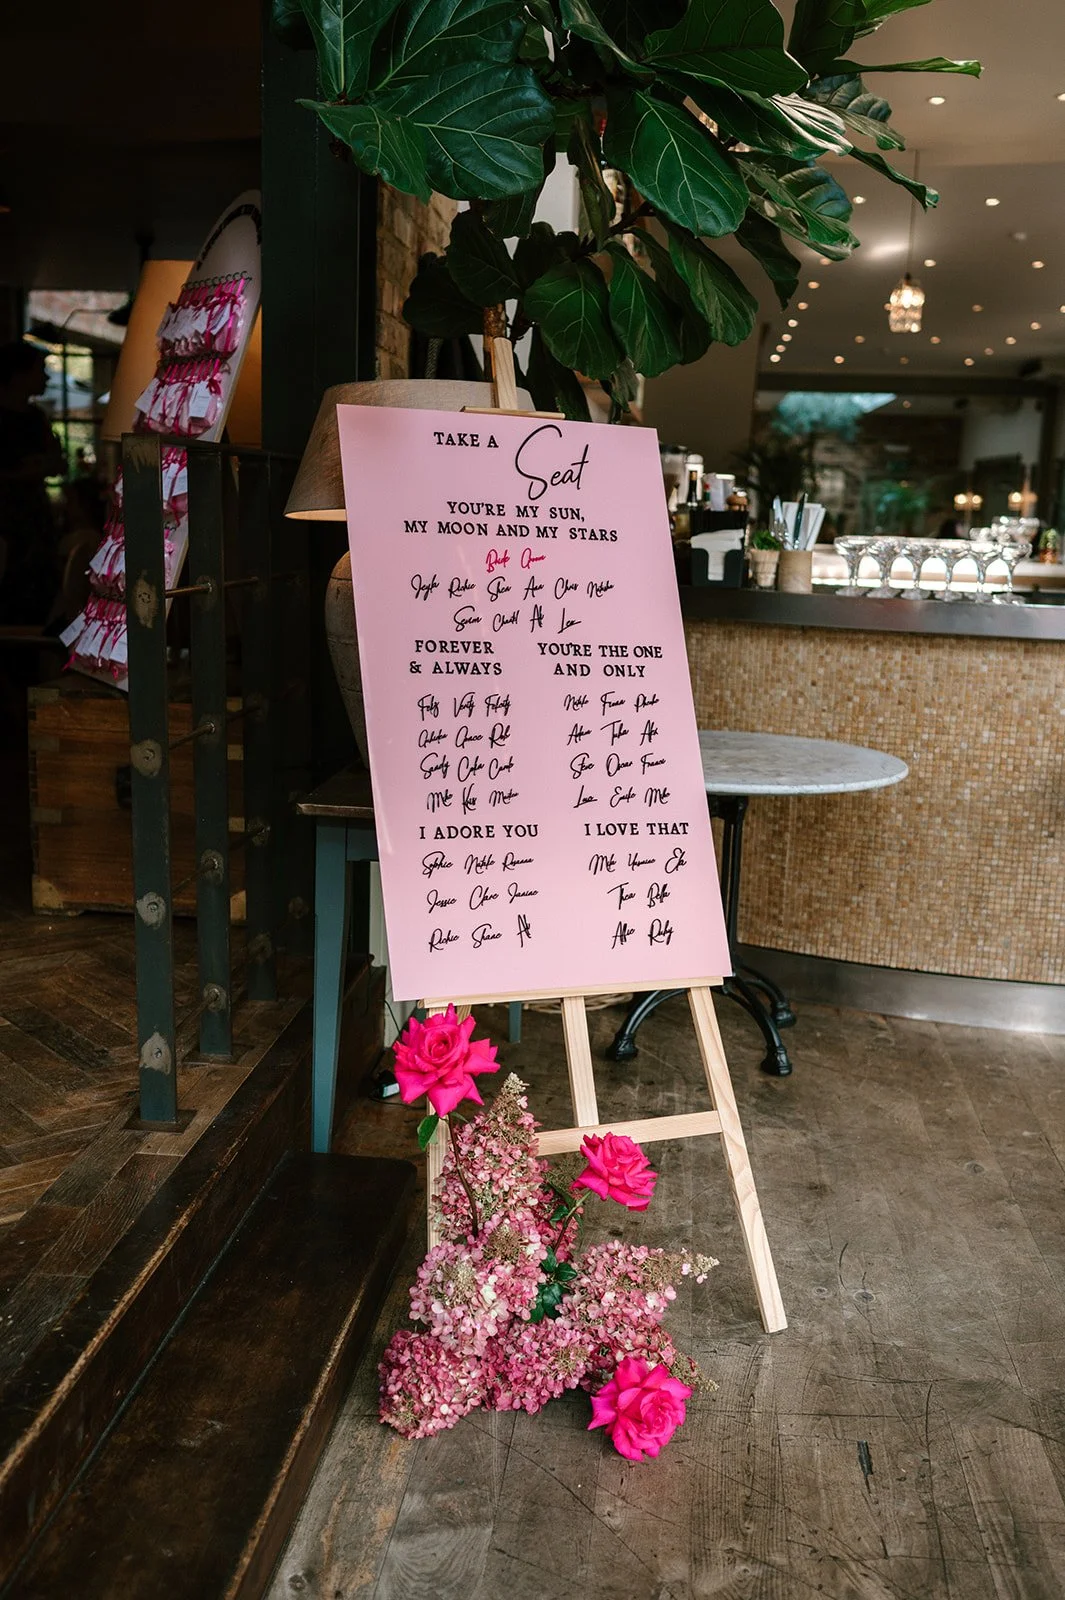 TAKE A Seat
YOU'RE MY SUN,
MY MOON AND MY STARS
Bride Groom
Richie Shea Ann Chris Natasha
Ali Leo
FOREVER
& ALWAYS
Verity Felicity
Grace Rob
Sandy Colin
Mike Kris Martin
YOU'RE THE ONE
AND ONLY
Natalie Fiona Phoebe
Adam Talia Alex
Steve Oscar
Emile Mike
I ADORE YOU
Sophie Natalie Roxanna
Jessie Clare Janine
Richie Shane Ali
I LOVE THAT
Ella
Thea Bella
Alfie Ruby